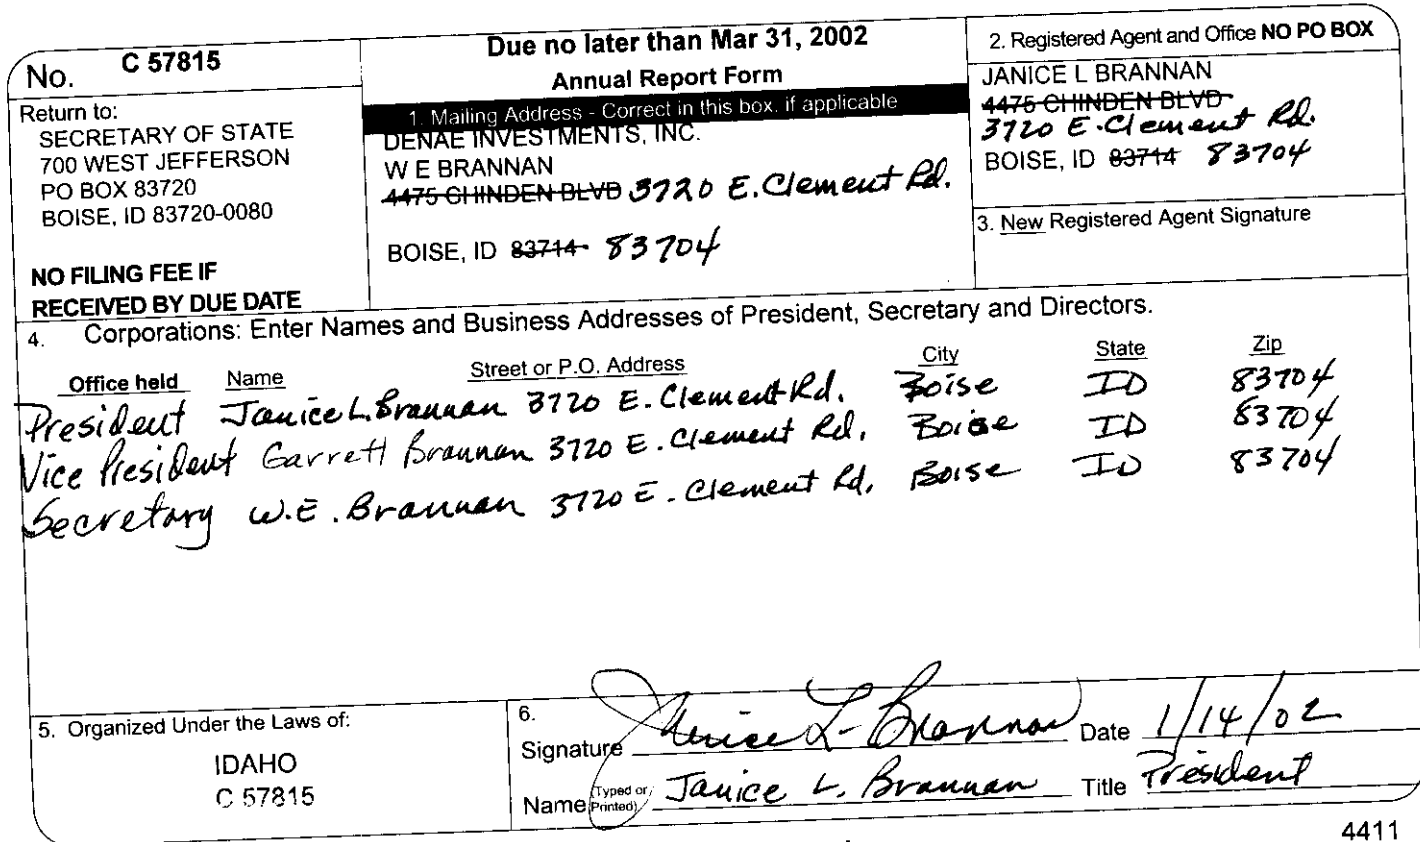 No. C 57815
Return to:
SECRETARY OF STATE
700 WEST JEFFERSON
PO BOX 83720
BOISE, ID 83720-0080
NO FILING FEE IF
RECEIVED BY DUE DATE
Due no later than Mar 31, 2002
Annual Report Form
1. Mailing Address - Correct in this box, if applicable
DENAE INVESTMENTS, INC.
W E BRANNAN
4475 CHINDEN BLVD 3720 E. Clement Rd.
BOISE, ID 83714 83704
2. Registered Agent and Office NO PO BOX
JANICE L BRANNAN
4475 CHINDEN BLVD
3720 E. Clement Rd.
BOISE, ID 83714 83704
3. New Registered Agent Signature
4. Corporations: Enter Names and Business Addresses of President, Secretary and Directors.
Office held Name Street or P.O. Address City State Zip
President Janice L. Brannan 3720 E. Clement Rd. Boise ID 83704
Vice President Garrett Brannan 3720 E. Clement Rd. Boise ID 83704
Secretary W.E. Brannan 3720 E. Clement Rd. Boise ID 83704
5. Organized Under the Laws of:
IDAHO
C 57815
6.
Signature Janice L. Brannan Date 1/14/02
Name (Typed or Printed) Janice L. Brannan Title President
4411